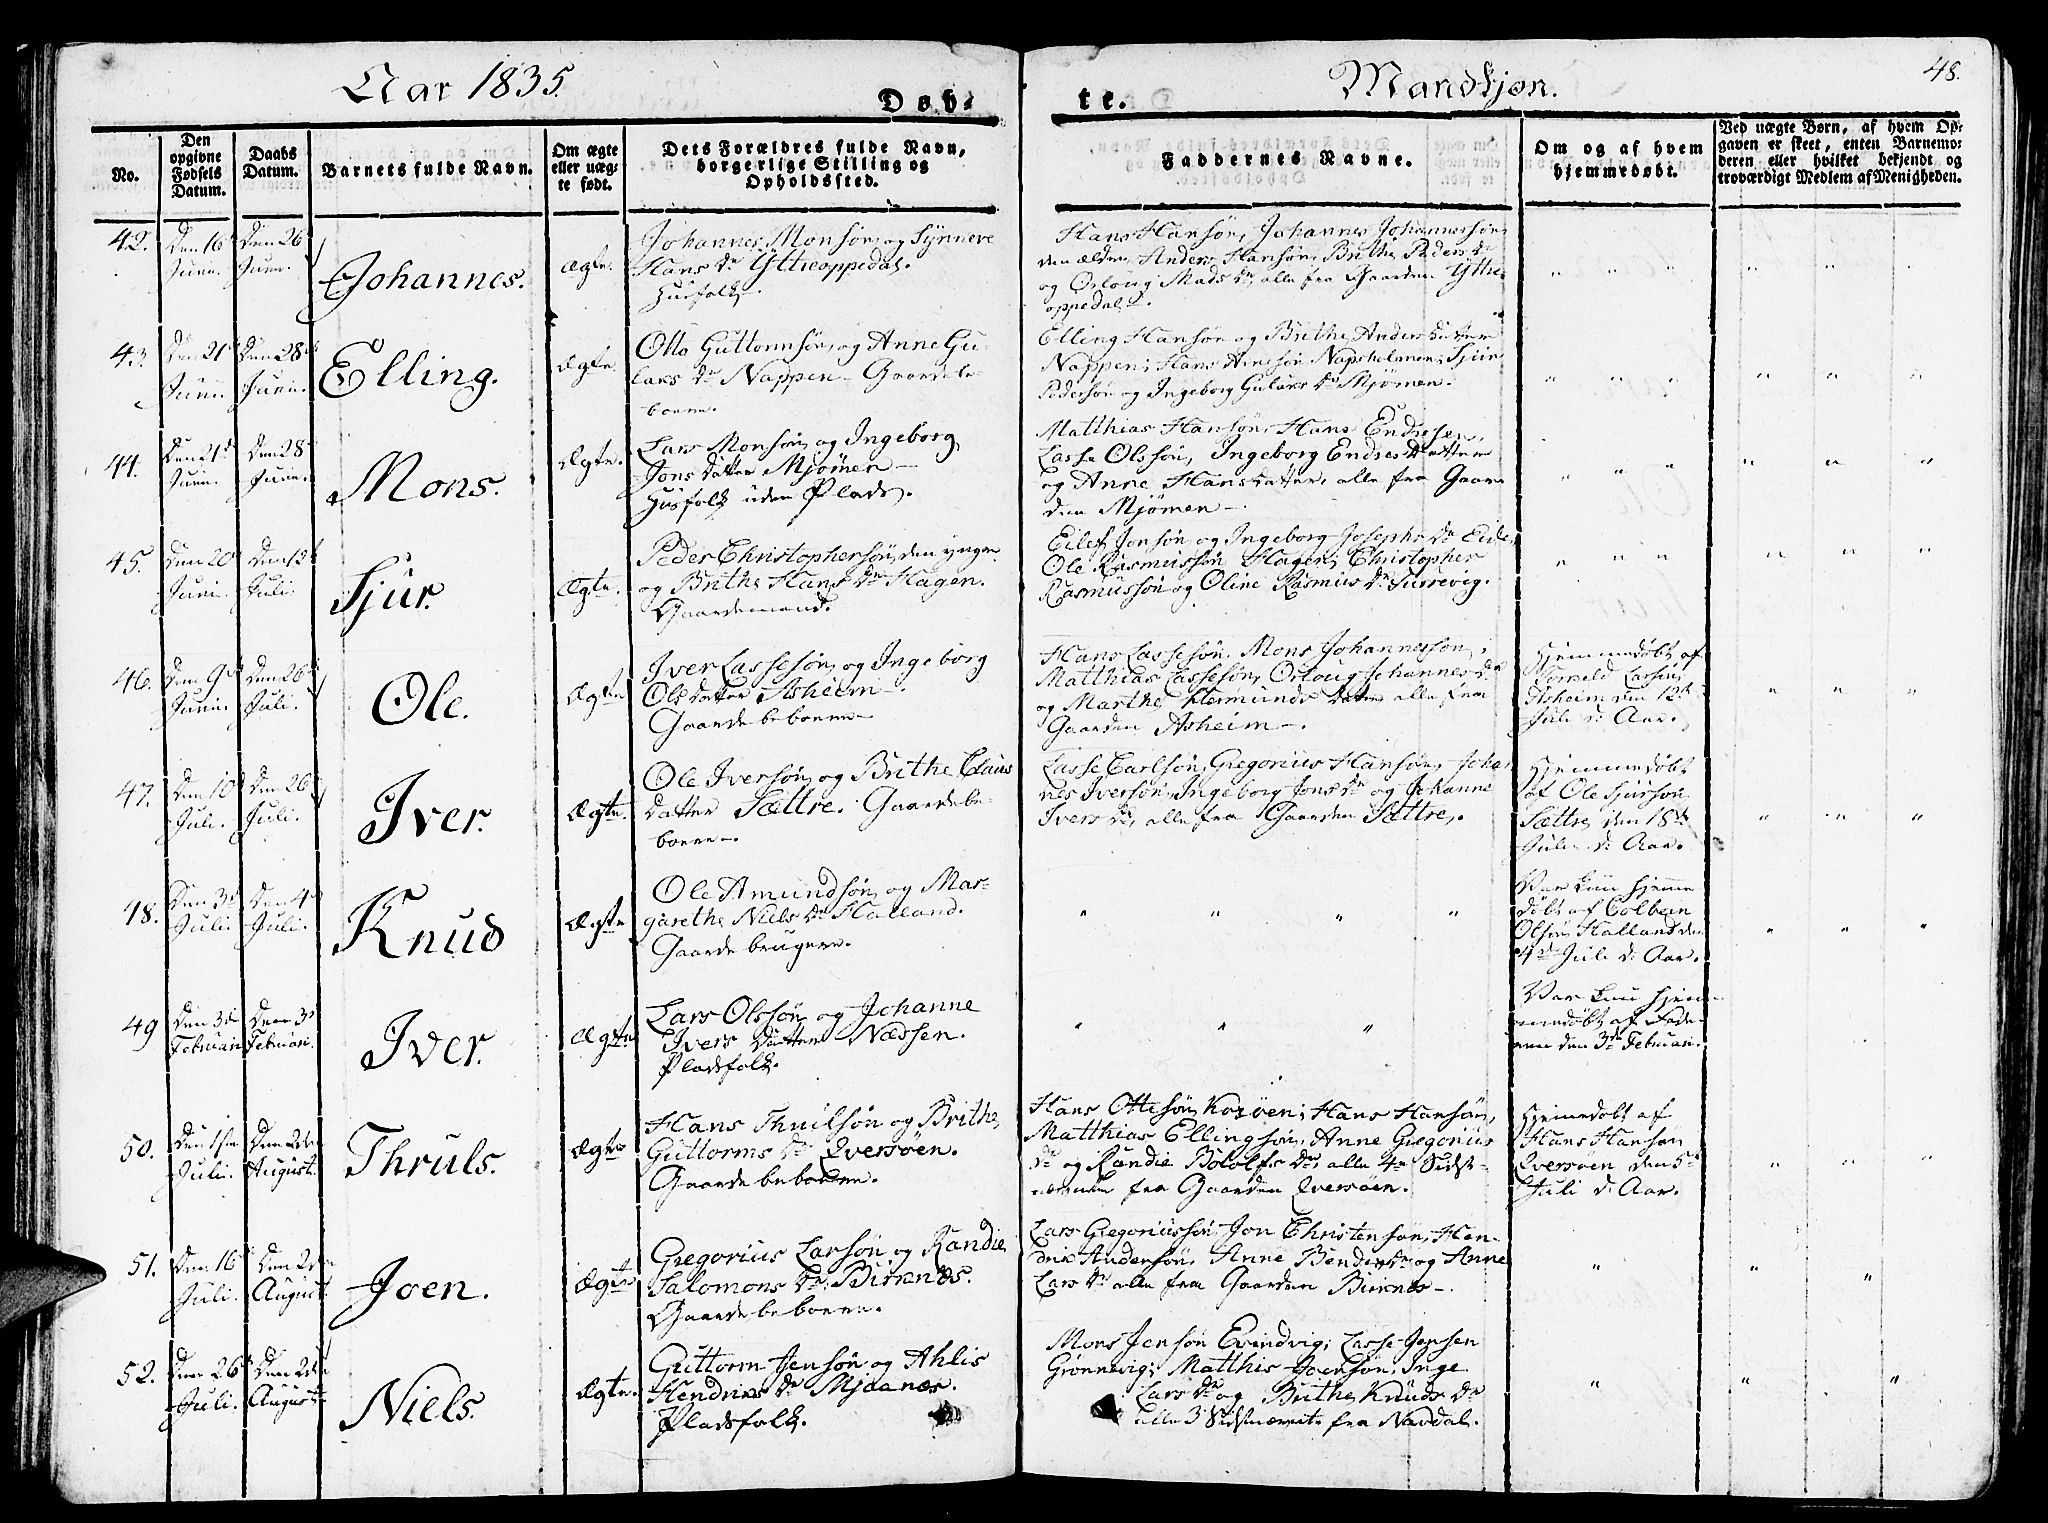 Aar 1835.
Døb-
te.
Mandkjøn.
48.
No.
Den opgivne Fødsels Datum.
Daabs Datum.
Barnets fulde Navn.
Om ægte eller uægte født.
Dets Forældres fulde Navn, borgerlige Stilling og Opholdssted.
Faddernes Navne.
Om og af hvem hjemmedøbt.
Ved uægte Børn, af hvem Opgaven er skeet, enten Barnemoderen eller hvilket bekjendt og troværdigt Medlem af Menigheden.
42.
Den 16d
Juni.
Den 26d
Juni.
Johannes.
Ægte.
Johannes Monsøn og Synneve
Hans Dr Yttreoppedal.
Husfolk.
Hans Hansøn, Johannes Johannessøn
den ældre, Anders Hansøn, Brithe Peders Dr
og Orloug Mads Dr, alle fra Gaarden Yttre
oppedal.
43.
Den 21d
Juni.
Den 28d
Juni.
Elling.
Ægte.
Otto Guttormsøn og Anne Gu-
laks Dr Nappen - Gaardbe-
boere.
Elling Hansøn og Brithe Andersdatter
Nappen; Hans Arnesøn Napsholmen; Sjur
Pedersøn og Ingeborg Gulaks Dr Mjømen.
44.
Den 21d
Juni.
Den 28
Juni.
Mons.
Ægte.
Lars Monsøn og Ingeborg
Jonsdatter Mjømen -
Husfolk uden Plads.
Matthias Hansøn, Hans Endresen,
Lasse Olssøn, Ingeborg Endresdatter
og Anne Hansdatter, alle fra Gaar-
den Mjømen -.
45.
Den 20
Juni.
Den 12t
Juli.
Sjur.
Ægte.
Peder Christophersøn den yngre
og Brithe Hans Dr Hagen.
Gaardemand.
Eilef Jonsøn og Ingeborg Josephs Dr Eide,
Ole Rasmussøn Hagen; Christopher
Rasmussøn og Oline Rasmus Dr Surrevig.
46.
Den 9d
Juni.
Den 26d
Juli.
Ole.
Ægte
Iver Lassesøn og Ingeborg
Olsdatter Asheim -.
Gaardebeboere -
Hans Lassesøn, Mons Johannessøn,
Matthias Lassesøn, Orloug Johannes Dr
og Marthe Hermunds Datter alle fra
Gaarden Asheim -.
Hjemmedøbt af
Tomeld Larsøn
Asheim den 12te
Juli d. Aar.
47.
Den 10d
Juli.
Den 26d
Juli.
Iver.
Ægte.
Ole Iversøn og Brithe Claus
Datter Sættre. Gaardebe-
boere -.
Lasse Carlsøn, Gregorius Hansøn, Johan-
nes Iversøn, Ingeborg Jons Dr og Johanne
Ivers Dr, alle fra Gaarden Sættre.
Hjemmedøbt
af Ole Sjursøn
Sættre den 18de
Juli d. Aar.
48.
Den 3d
Juli.
Den 4d
Juli.
Knud
Ægte
Ole Amundsøn og Mar-
garethe Niels Dr Halland.
Gaardebrugere.
Var kun hjemme
døbt af Colbein
Olsøn Halland den
4de Juli d. Aar.
49
Den 3d
Februari
Den 3d
Februari.
Iver.
Ægte
Lars Olssøn og Johanne
Ivers Datter Næssen.
Pladsfolk.
Var kun hjem-
medøbt af Fade-
ren den 3de Februari.
50.
Den 1ste
Juli.
Den 2den
August.
Thruls.
Ægte
Hans Thrulsøn og Brithe
Guttorms Dr Qversøen.
Gaardebeboere.
Hans Ottesøn Korsøen; Hans Hansøn,
Matthias Ellingsøn, Anne Gregorius
Dr og Randie Bololfs Dr, alle 4re Sidst-
nævnte fra Gaarden Qversøen.
Hjemmedøbt af
Hans Hansøn
Qversøen den 5te
Juli d. Aar.
51.
Den 16d
Juli.
Den 2den
August.
Joen.
Ægte
Gregorius Larsøn og Randie
Salomons Dr Birknæs.
Gaardebeboere.
Lars Gregoriussøn, Jon Christensøn, Hen-
drik Andersøn, Anne Bendix Dr og Anne
Lars Dr alle fra Gaarden Birknæs -.
52.
Den 26d
Juli.
Den 2den
August.
Niels.
Ægte.
Guttorm Jensøn og Ahlis
Hendriks Dr Mjaanæs.
Pladsfolk.
Mons Jensøn Evindvig; Lasse Jensen
Grønnevig; Matthis Joensøn, Inge
Lars Dr og Brithe Knuds Dr
alle 3 Sidstnævnte fra Nordal.